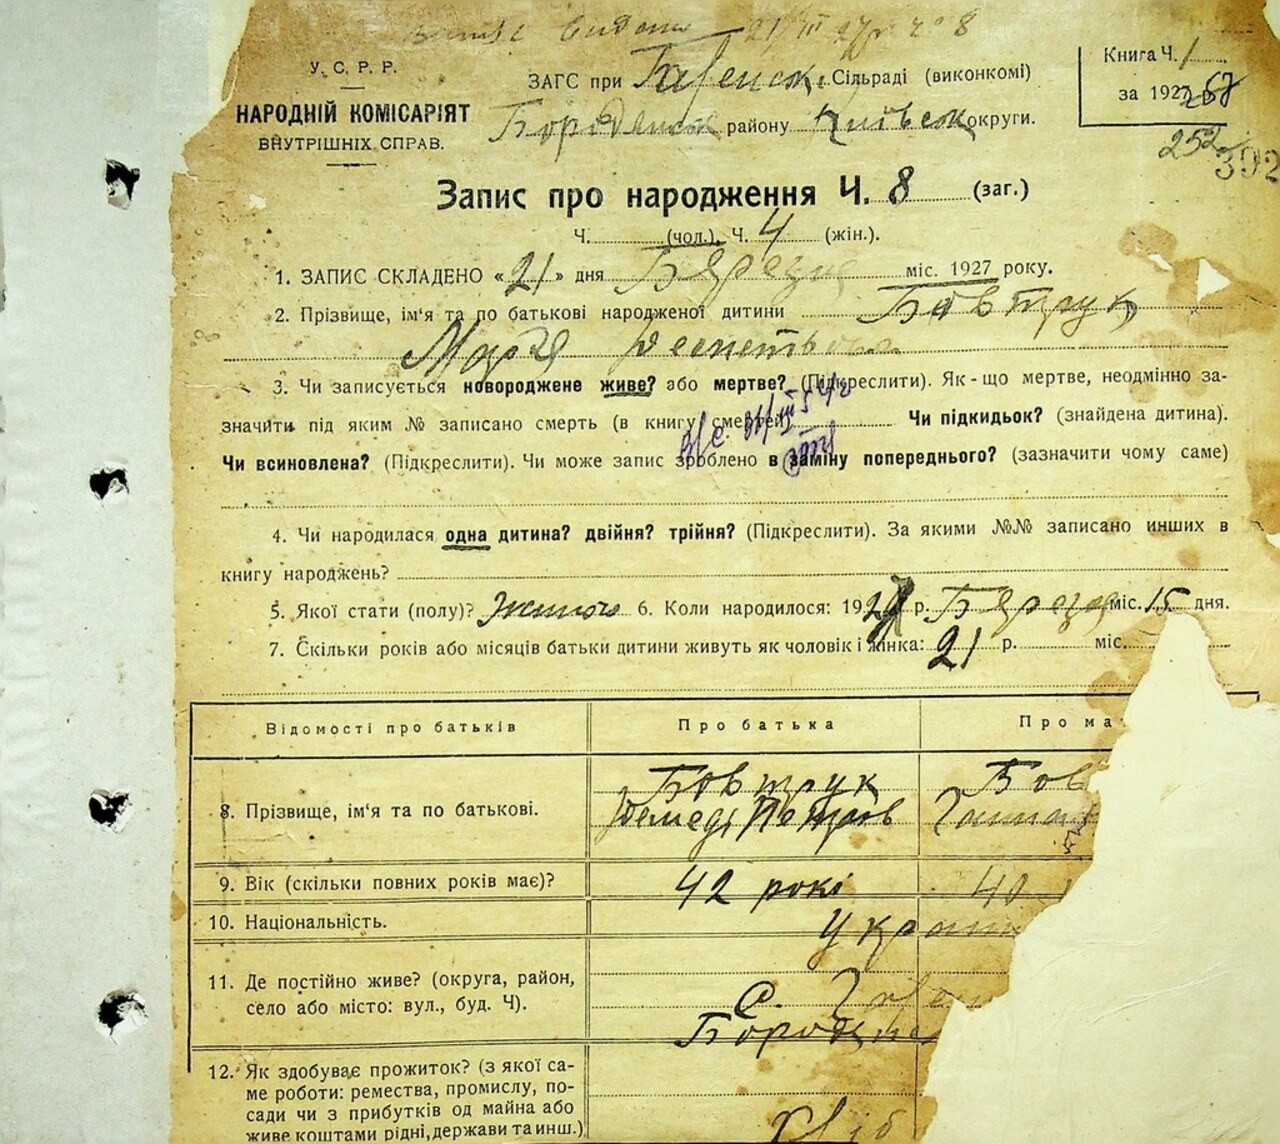 21/III 27 р ч. 8
У. С. Р. Р.
НАРОДНІЙ КОМІСАРІЯТ
ВНУТРІШНІХ СПРАВ.
ЗАГС при Сільраді (виконкомі)
Бородянськ району Київськ округи.
Книга Ч. 1
за 1927 р.
252
392
Запис про народження Ч. 8 (заг.)
Ч. (чол.). Ч. 4 (жін.).
1. ЗАПИС СКЛАДЕНО «21» дня Березня міс. 1927 року.
2. Прізвище, ім'я та по батькові народженої дитини Бовтрук
Марія
3. Чи записується новороджене живе? або мертве? (Підкреслити). Як-що мертве, неодмінно за-
значити під яким № записано смерть (в книгу смертей) Чи підкидьок? (знайдена дитина).
Чи всиновлена? (Підкреслити). Чи може запис зроблено в заміну попереднього? (зазначити чому саме)
4. Чи народилася одна дитина? двійня? трійня? (Підкреслити). За якими №№ записано инших в
книгу народжень?
5. Якої стати (полу)? Жіночо 6. Коли народилося: 1927 р. Березня міс. 15 дня.
7. Скільки років або місяців батьки дитини живуть як чоловік і жінка: 21 р. міс.
Відомості про батьків Про батька Про ма
8. Прізвище, ім'я та по батькові. Бовтрук Бов
Демед Петров
9. Вік (скільки повних років має)? 42 рокі 40
10. Національність. Україн
11. Де постійно живе? (округа, район,
село або місто: вул., буд. Ч). С.
Бородянс
12. Як здобуває прожиток? (з якої са-
ме роботи: ремества, промислу, по-
сади чи з прибутків од майна або
живе коштами рідні, держави та инш.) хліб